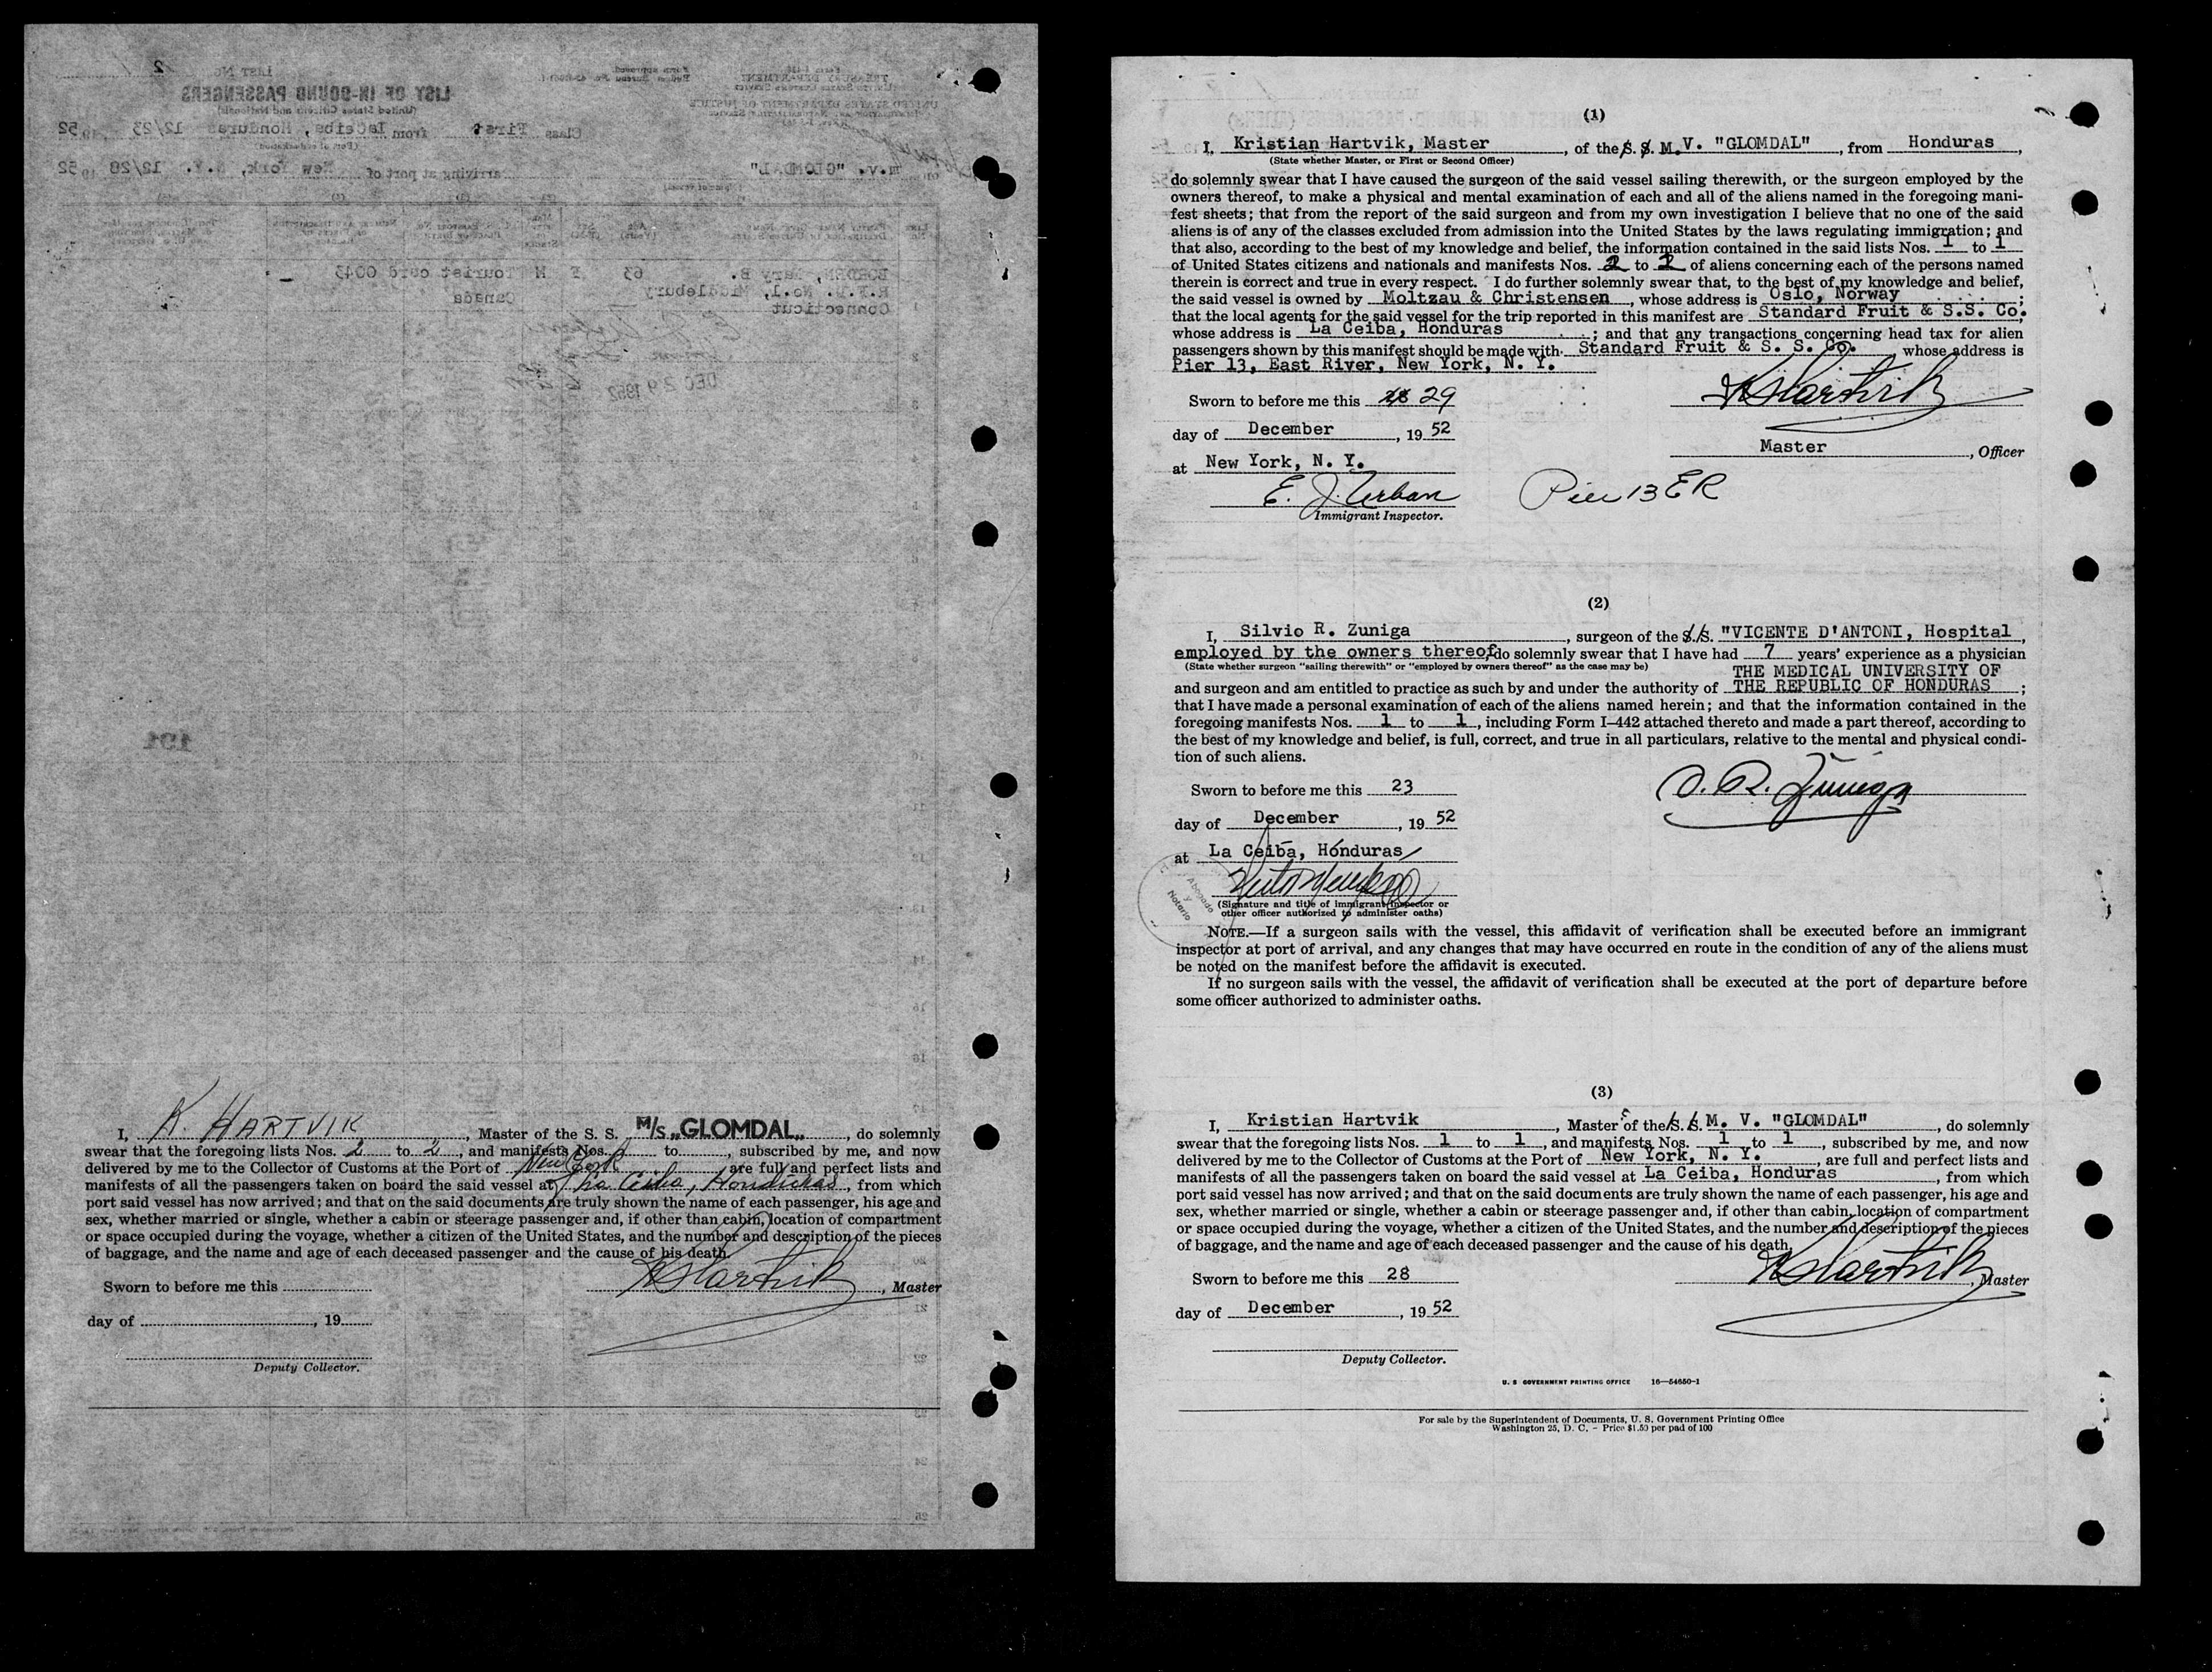 LIST No. 2
LIST OF IN-BOUND PASSENGERS
(United States Citizens and Nationals)
Class First from LaCeiba, Honduras 12/23 1952
m.v. "GLOMDAL" arriving at port of New York, N.Y. 12/28 1952
BORDEN, Mary B. 63 F M Tourist card 0043
R.F.D. No.1, Middlebury Canada
Connecticut
DEC 29 1952
191
I, K. HARTVIK, Master of the S. S. M/S „GLOMDAL„, do solemnly
swear that the foregoing lists Nos. 2 to 2, and manifests Nos. to , subscribed by me, and now
delivered by me to the Collector of Customs at the Port of New York are full and perfect lists and
manifests of all the passengers taken on board the said vessel at La Ceiba, Honduras, from which
port said vessel has now arrived; and that on the said documents are truly shown the name of each passenger, his age and
sex, whether married or single, whether a cabin or steerage passenger and, if other than cabin, location of compartment
or space occupied during the voyage, whether a citizen of the United States, and the number and description of the pieces
of baggage, and the name and age of each deceased passenger and the cause of his death.
Sworn to before me this
K Hartvik, Master
day of , 19
Deputy Collector.
(1)
I, Kristian Hartvik, Master, of the S. S. M.V. "GLOMDAL", from Honduras,
(State whether Master, or First or Second Officer)
do solemnly swear that I have caused the surgeon of the said vessel sailing therewith, or the surgeon employed by the
owners thereof, to make a physical and mental examination of each and all of the aliens named in the foregoing mani-
fest sheets; that from the report of the said surgeon and from my own investigation I believe that no one of the said
aliens is of any of the classes excluded from admission into the United States by the laws regulating immigration; and
that also, according to the best of my knowledge and belief, the information contained in the said lists Nos. 1 to 1
of United States citizens and nationals and manifests Nos. 2 to 2 of aliens concerning each of the persons named
therein is correct and true in every respect. I do further solemnly swear that, to the best of my knowledge and belief,
the said vessel is owned by Moltzau & Christensen, whose address is Oslo, Norway ;
that the local agents for the said vessel for the trip reported in this manifest are Standard Fruit & S.S. Co.
whose address is La Ceiba, Honduras ; and that any transactions concerning head tax for alien
passengers shown by this manifest should be made with Standard Fruit & S. S. Co. whose address is
Pier 13, East River, New York, N. Y.
Sworn to before me this 28 29
K Hartvik
day of December, 19 52
Master, Officer
at New York, N. Y.
E. J. Urban
Pier 13 ER
Immigrant Inspector.
(2)
I, Silvio R. Zuniga, surgeon of the S.S. "VICENTE D'ANTONI, Hospital,
employed by the owners thereof do solemnly swear that I have had 7 years' experience as a physician
(State whether surgeon "sailing therewith" or "employed by owners thereof" as the case may be)
THE MEDICAL UNIVERSITY OF
and surgeon and am entitled to practice as such by and under the authority of THE REPUBLIC OF HONDURAS ;
that I have made a personal examination of each of the aliens named herein; and that the information contained in the
foregoing manifests Nos. 1 to 1, including Form I-442 attached thereto and made a part thereof, according to
the best of my knowledge and belief, is full, correct, and true in all particulars, relative to the mental and physical condi-
tion of such aliens.
Sworn to before me this 23
S. R. Zuniga
day of December, 19 52
at La Ceiba, Honduras
Abogado
y
Notario
(Signature and title of immigrant inspector or
other officer authorized to administer oaths)
NOTE.—If a surgeon sails with the vessel, this affidavit of verification shall be executed before an immigrant
inspector at port of arrival, and any changes that may have occurred en route in the condition of any of the aliens must
be noted on the manifest before the affidavit is executed.
If no surgeon sails with the vessel, the affidavit of verification shall be executed at the port of departure before
some officer authorized to administer oaths.
(3)
I, Kristian Hartvik, Master of the S. S. M. V. "GLOMDAL", do solemnly
swear that the foregoing lists Nos. 1 to 1, and manifests Nos. 1 to 1, subscribed by me, and now
delivered by me to the Collector of Customs at the Port of New York, N. Y., are full and perfect lists and
manifests of all the passengers taken on board the said vessel at La Ceiba, Honduras, from which
port said vessel has now arrived; and that on the said documents are truly shown the name of each passenger, his age and
sex, whether married or single, whether a cabin or steerage passenger and, if other than cabin, location of compartment
or space occupied during the voyage, whether a citizen of the United States, and the number and description of the pieces
of baggage, and the name and age of each deceased passenger and the cause of his death.
Sworn to before me this 28
K Hartvik, Master
day of December, 19 52
Deputy Collector.
U. S GOVERNMENT PRINTING OFFICE 16—54650-1
For sale by the Superintendent of Documents, U. S. Government Printing Office
Washington 25, D. C. - Price $1.50 per pad of 100